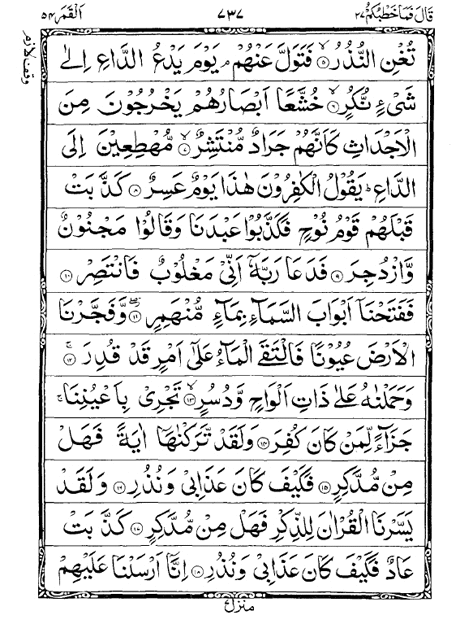 قَالَ فَمَا خَطْبُكُمْ ٢٧ ٧٣٧ اَلْقَمَر ٥٤
وقف لازم
تُغْنِ النُّذُرُ ۙ‏﴿۵﴾ فَتَوَلَّ عَنْهُمْ ۘ يَوْمَ يَدْعُ الدَّاعِ اِلٰى
شَىْءٍ نُّكُرٍ ۙ‏﴿۶﴾ خُشَّعًا اَبْصَارُهُمْ يَخْرُجُوْنَ مِنَ
الْاَجْدَاثِ كَاَنَّهُمْ جَرَادٌ مُّنْتَشِرٌ ۙ‏﴿۷﴾ مُّهْطِعِيْنَ اِلَى
الدَّاعِ ؕ يَقُوْلُ الْكٰفِرُوْنَ هٰذَا يَوْمٌ عَسِرٌ ‏﴿۸﴾ كَذَّبَتْ
قَبْلَهُمْ قَوْمُ نُوْحٍ فَكَذَّبُوْا عَبْدَنَا وَقَالُوْا مَجْنُوْنٌ
وَّازْدُجِرَ ‏﴿۹﴾ فَدَعَا رَبَّهٗۤ اَنِّىْ مَغْلُوْبٌ فَانْتَصِرْ ‏﴿۱۰﴾
فَفَتَحْنَاۤ اَبْوَابَ السَّمَآءِ بِمَآءٍ مُّنْهَمِرٍ ‏﴿۱۱﴾ وَّفَجَّرْنَا
الْاَرْضَ عُيُوْنًا فَالْتَقَى الْمَآءُ عَلٰٓى اَمْرٍ قَدْ قُدِرَ ۚ‏﴿۱۲﴾
وَحَمَلْنٰهُ عَلٰى ذَاتِ اَلْوَاحٍ وَّدُسُرٍ ۙ‏﴿۱۳﴾ تَجْرِىْ بِاَعْيُنِنَا ۚ
جَزَآءً لِّمَنْ كَانَ كُفِرَ ‏﴿۱۴﴾ وَلَقَدْ تَّرَكْنٰهَاۤ اٰيَةً فَهَلْ
مِنْ مُّدَّكِرٍ ‏﴿۱۵﴾ فَكَيْفَ كَانَ عَذَابِىْ وَنُذُرِ ‏﴿۱۶﴾ وَلَقَدْ
يَسَّرْنَا الْقُرْاٰنَ لِلذِّكْرِ فَهَلْ مِنْ مُّدَّكِرٍ ‏﴿۱۷﴾ كَذَّبَتْ
عَادٌ فَكَيْفَ كَانَ عَذَابِىْ وَنُذُرِ ‏﴿۱۸﴾ اِنَّاۤ اَرْسَلْنَا عَلَيْهِمْ
منزل